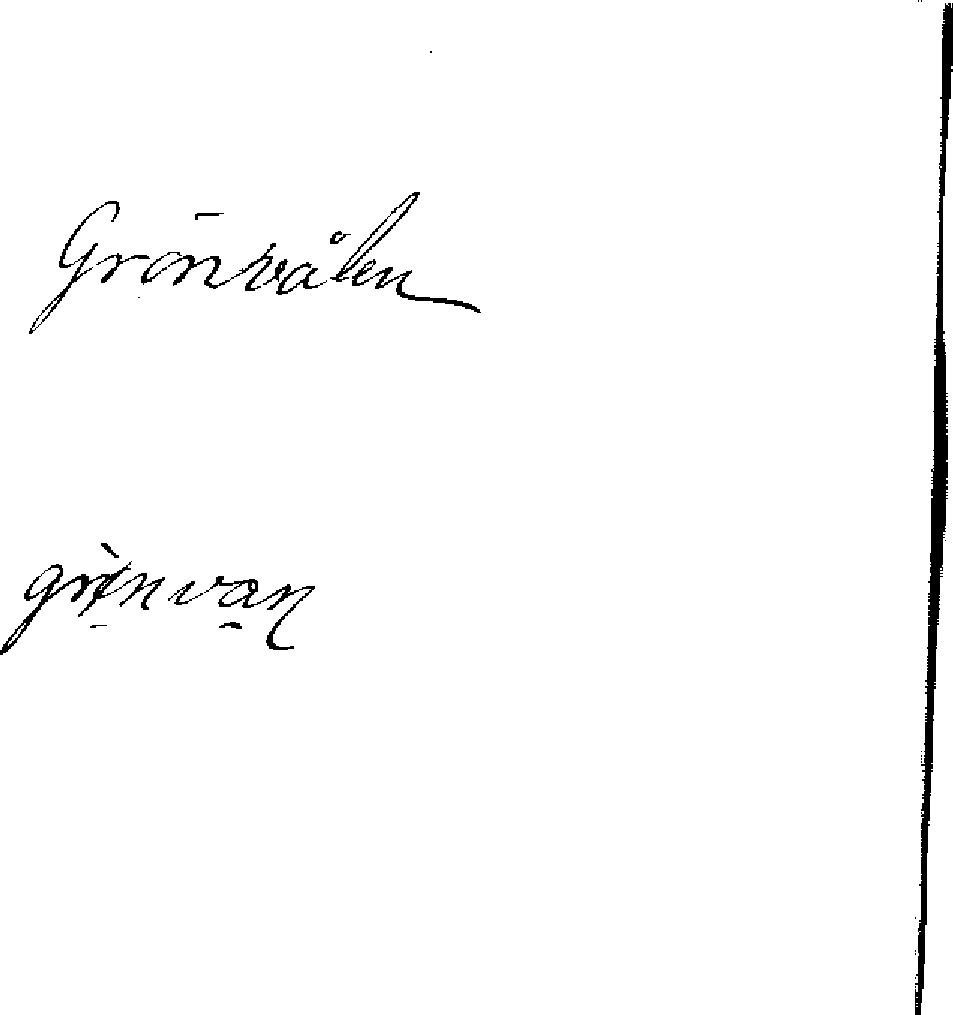 Grönvålen
grø̀nvaɳ